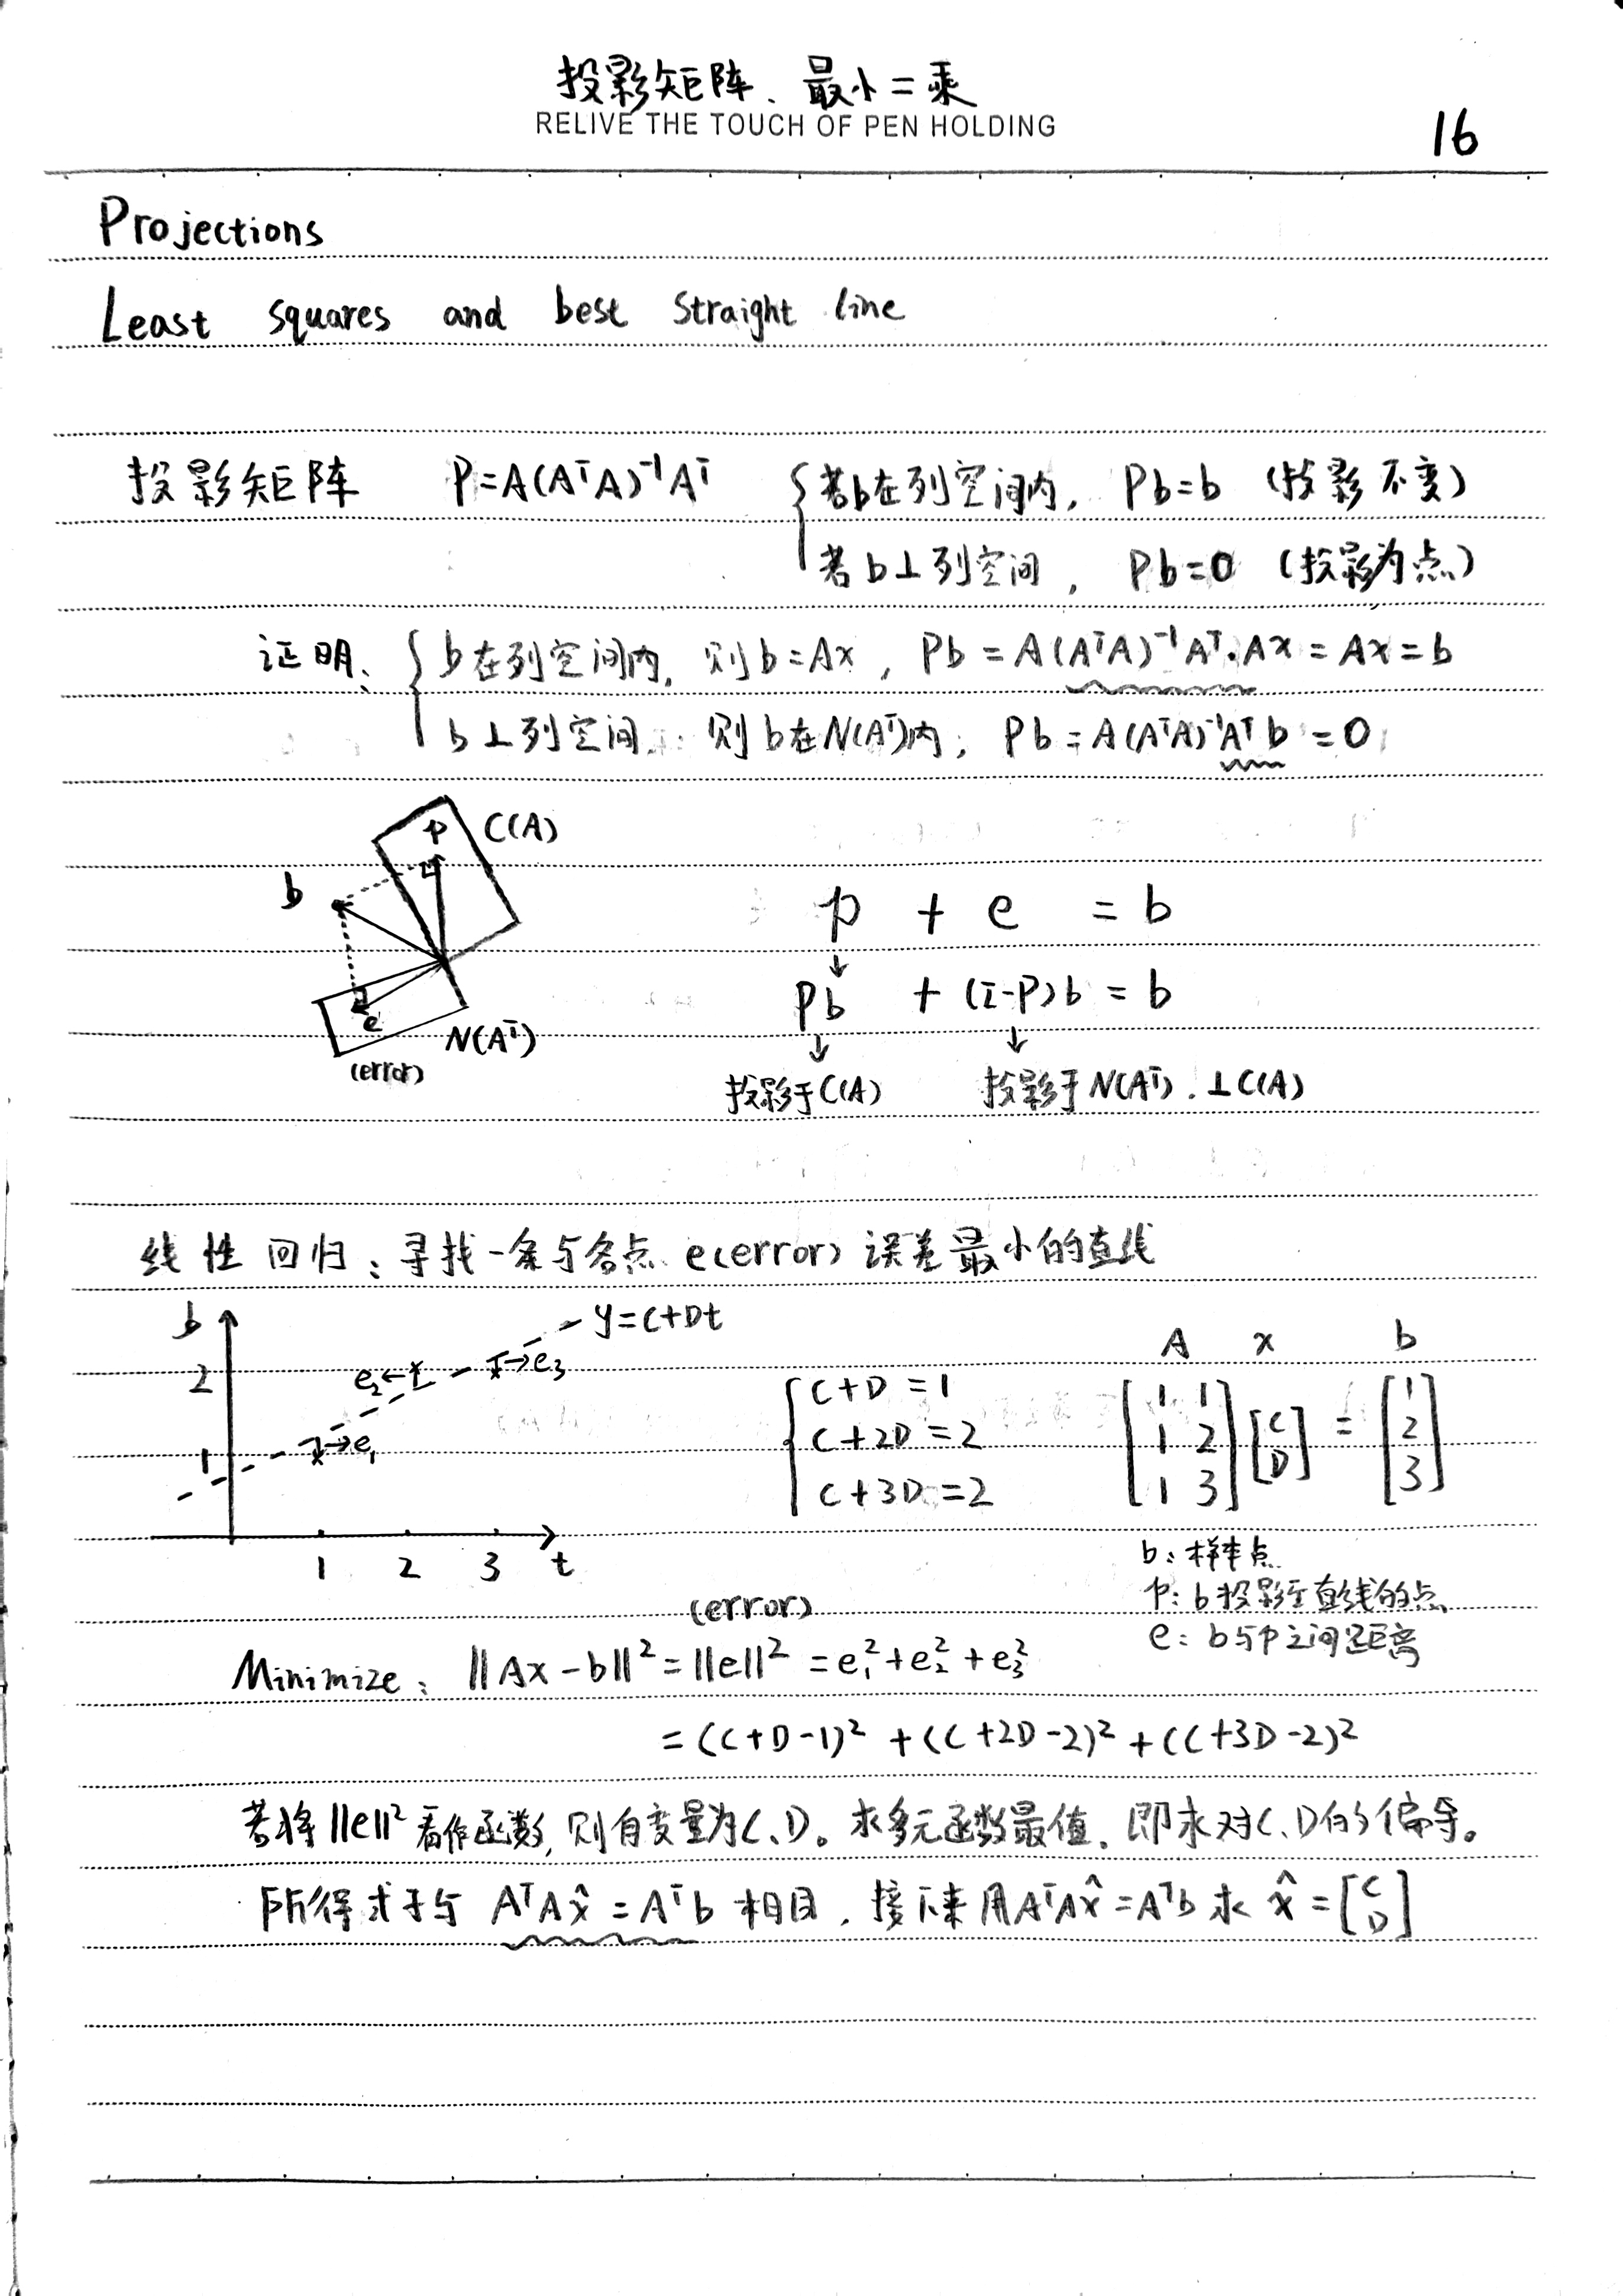 投影矩阵、最小二乘
RELIVE THE TOUCH OF PEN HOLDING
16
Projections
Least squares and best straight line
投影矩阵 P=A(AᵀA)⁻¹Aᵀ { 若b在列空间内, Pb=b (投影不变)
若b⊥列空间, Pb=0 (投影为点)
证明: { b在列空间内, 则b=Ax, Pb=A(AᵀA)⁻¹Aᵀ·Ax=Ax=b
b⊥列空间, 则b在N(Aᵀ)内, Pb=A(AᵀA)⁻¹Aᵀb=0
p C(A)
b
e
N(Aᵀ)
(error)
p + e = b
↓
Pb + (I-P)b = b
↓ ↓
投影于C(A) 投影于N(Aᵀ). ⊥C(A)
线性回归: 寻找一条与各点 e(error) 误差最小的直线
b y=C+Dt
2 e₂← →e₃
1 →e₁
1 2 3 t
{ C+D=1
C+2D=2
C+3D=2
A x b
[1 1; 1 2; 1 3] [C; D] = [1; 2; 3]
b: 样本点
p: b投影至直线的点
e: b与p之间距离
(error)
Minimize: ||Ax-b||²=||e||²=e₁²+e₂²+e₃²
=(C+D-1)²+(C+2D-2)²+(C+3D-2)²
若将||e||²看作函数, 则自变量为C、D。求多元函数最值, 即求对C、D的偏导。
所得式子与 AᵀAx̂=Aᵀb 相同, 接下来用AᵀAx̂=Aᵀb求 x̂=[C; D]